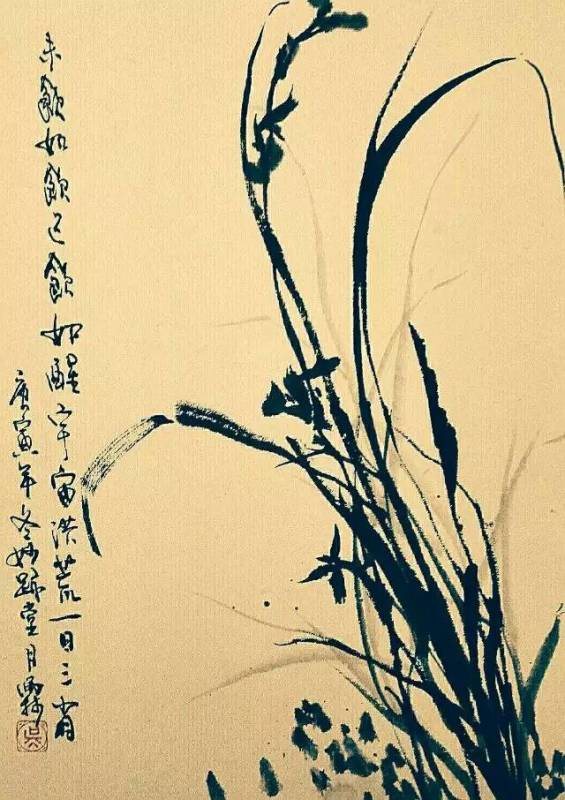 未飲如飲已飲如醒宇宙洪荒一日三省
庚寅年冬妙堂月
吳